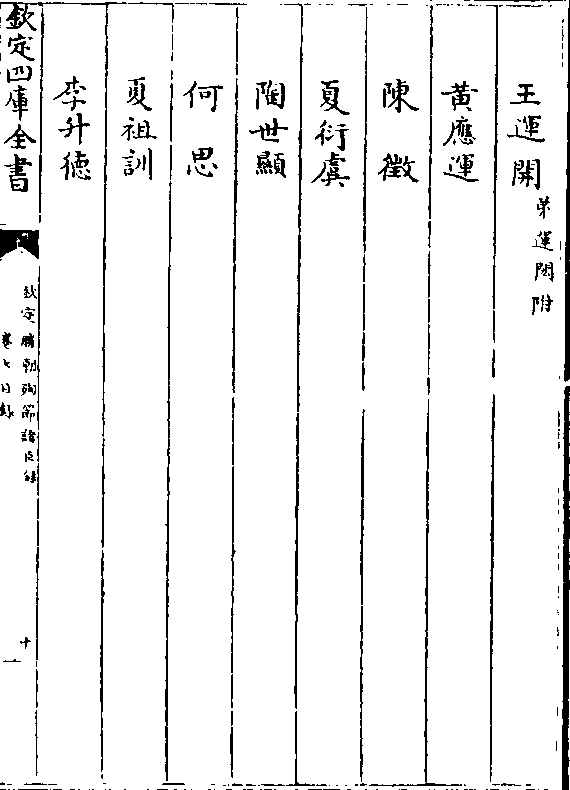 王運開弟運閎附
黄應運
陳徵
夏衍虞
陶世顯
何思
夏祖訓
李升德
欽定四庫全書
欽定勝朝殉節諸臣録
卷七目録
十一